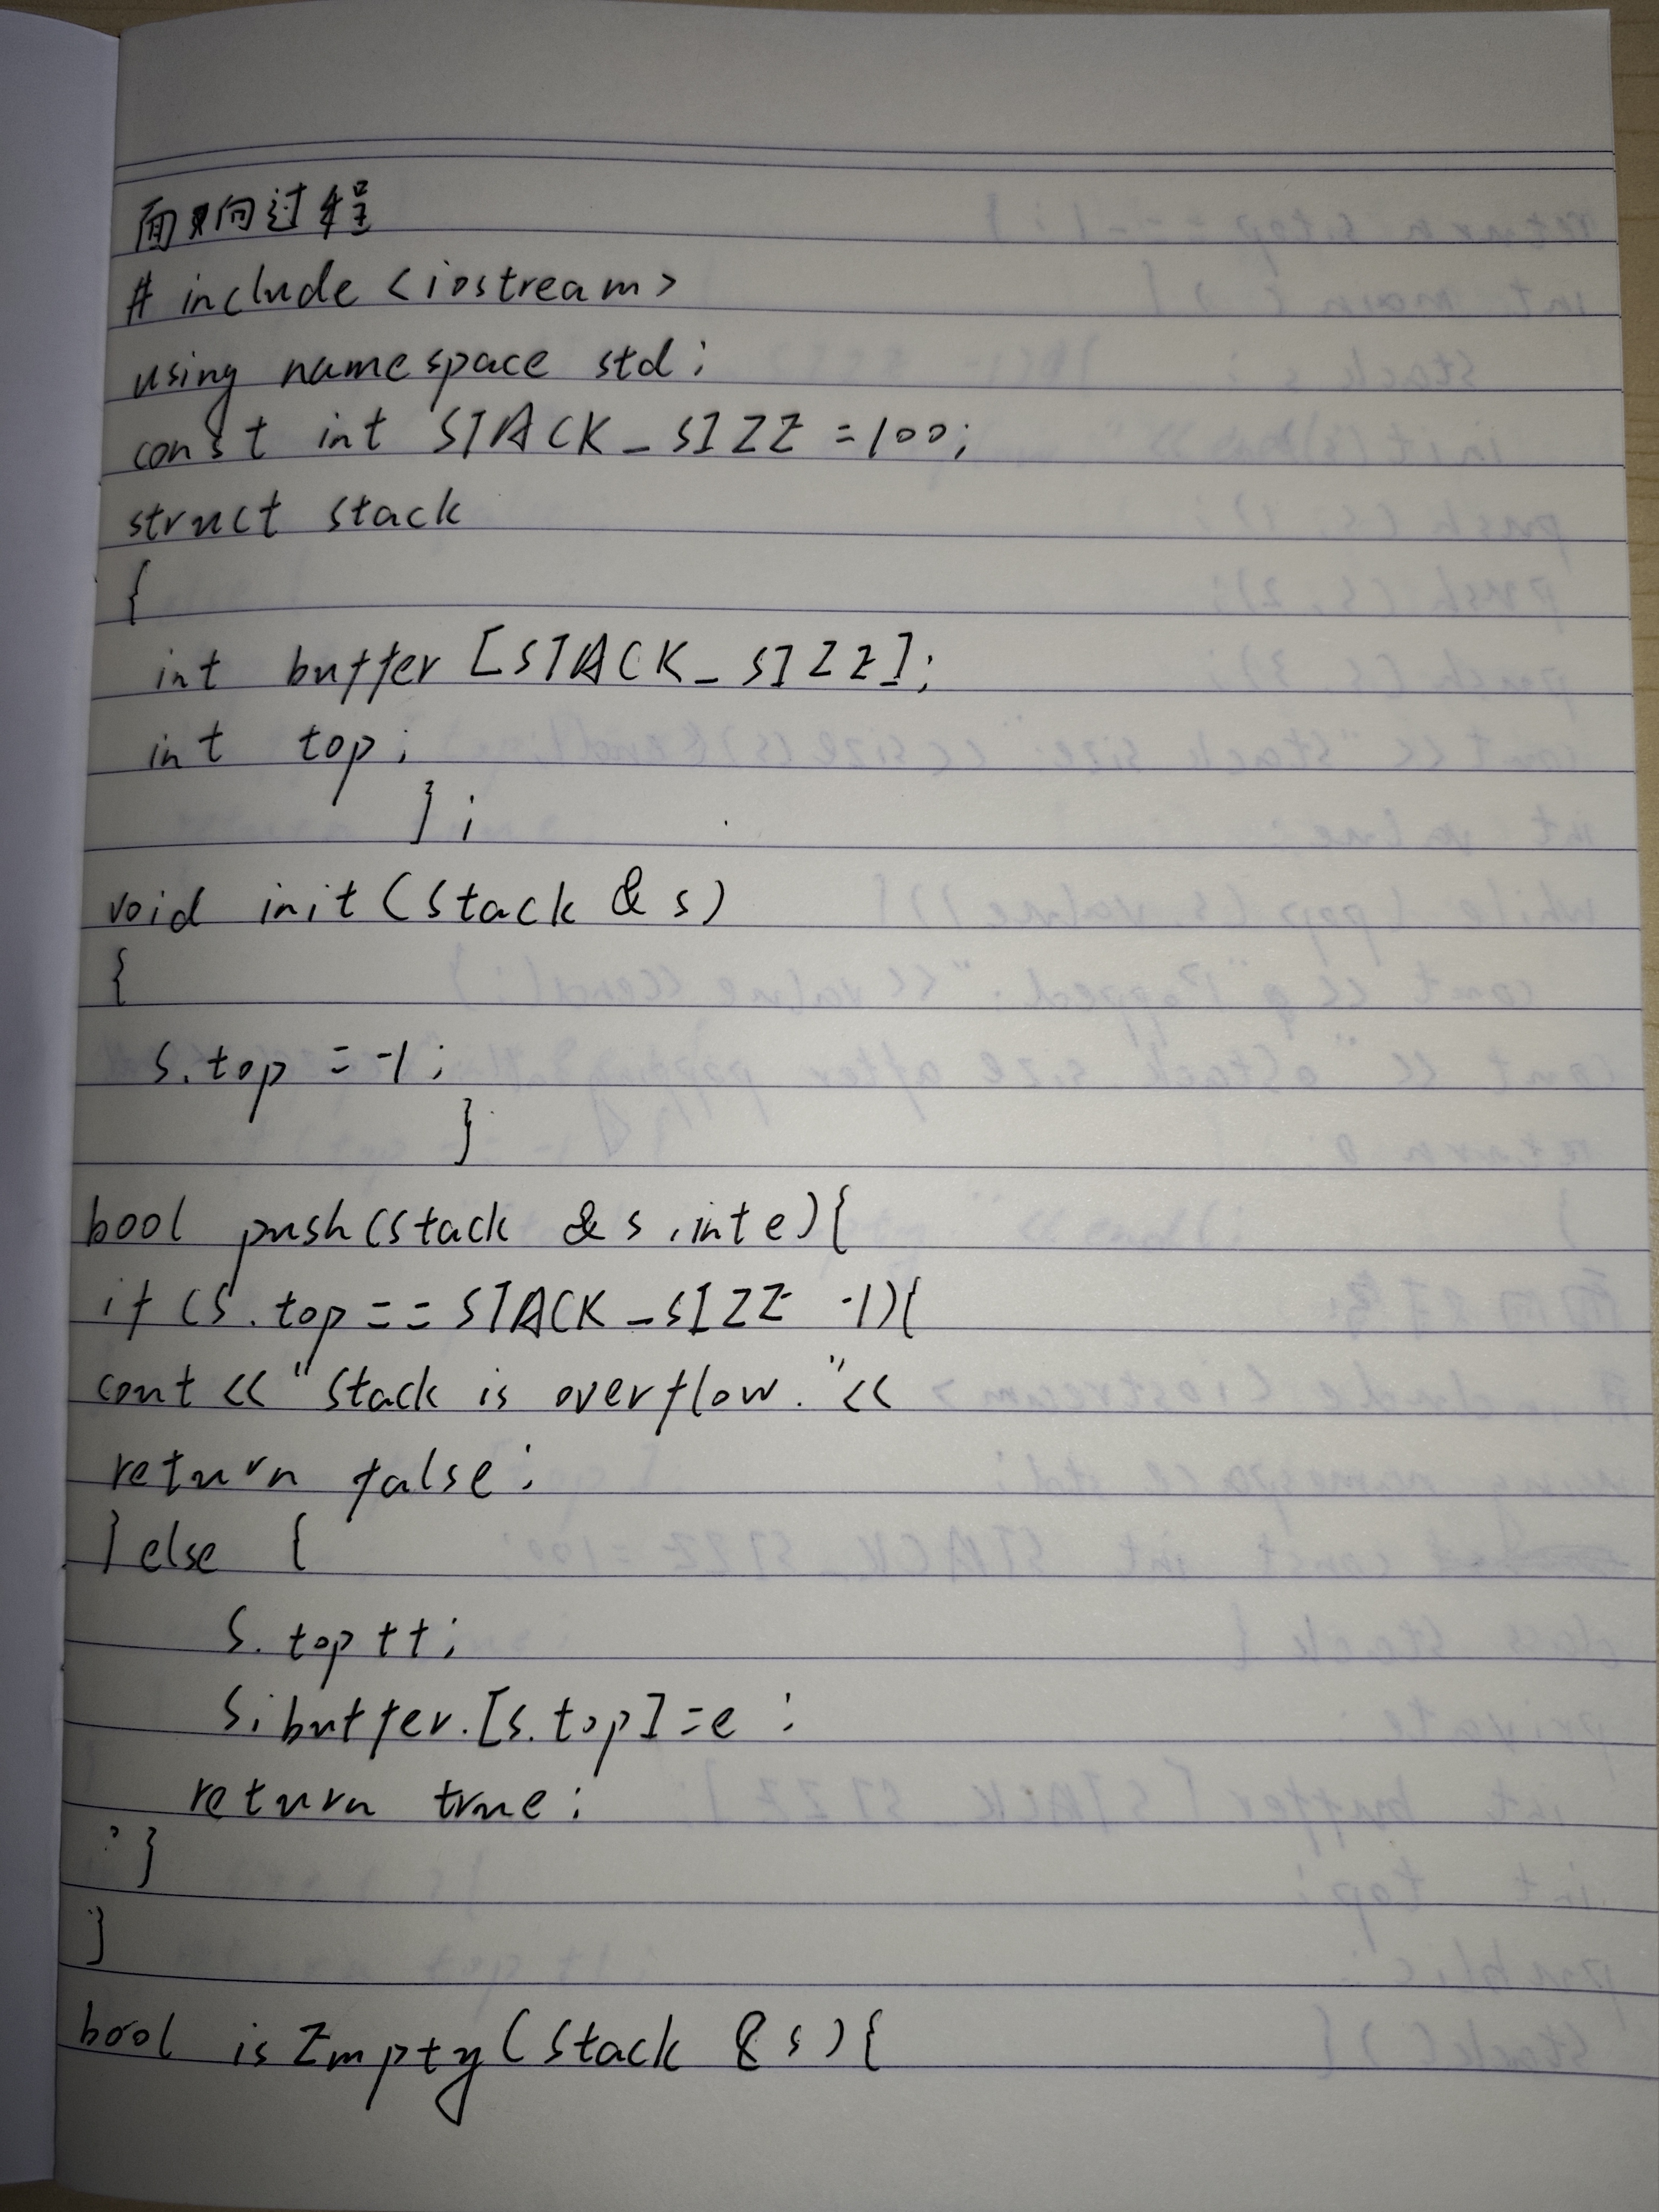 面向过程
# include <iostream>
using namespace std;
const int STACK_SIZE =100;
struct stack
{
int buffer [STACK_SIZE];
int top;
};
void init (stack & s)
{
s.top = -1;
}
bool push(stack & s, int e){
if (s.top == STACK_SIZE -1){
cout << "stack is overflow." <<
return false;
} else {
s. top ++;
s. buffer.[s.top]=e ;
return true;
}
}
bool isEmpty (stack &s){